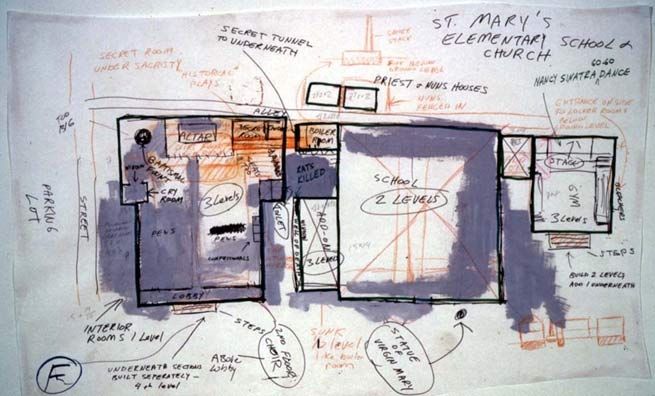 ST. MARY'S
ELEMENTARY SCHOOL &
CHURCH
SECRET TUNNEL
TO UNDERNEATH
SECRET ROOM
UNDER SACRISTY
HISTORICAL
PLAYS
PRIEST & NUNS HOUSES
NUNS
FENCED IN
GO GO
NANCY SINATRA DANCE
ENTRANCE ON SIDE
TO LOCKER ROOMS
BELOW
ALLEY
TOO
BIG
ALTAR
BOILER
ROOM
STAGE
GYM
3 LEVELS
BLEACHERS
BAPTISMAL
FONT
CRY
ROOM
RATS
KILLED
SCHOOL
2 LEVELS
3 Levels
TOILET
ADD-ON
3 LEVEL
PARKING
LOT
STREET
PEWS
PEWS
CONFESSIONALS
LOBBY
STEPS
BUILD 2 LEVELS
ADD 1 UNDERNEATH
INTERIOR
ROOMS 1 Level
STEPS
2ND FLOOR
CHOIR
Above
Lobby
SUNK
level
like boiler
room
STATUE
OF
VIRGIN MARY
UNDERNEATH SECTIONS
BUILT SEPERATELY -
4th level
F